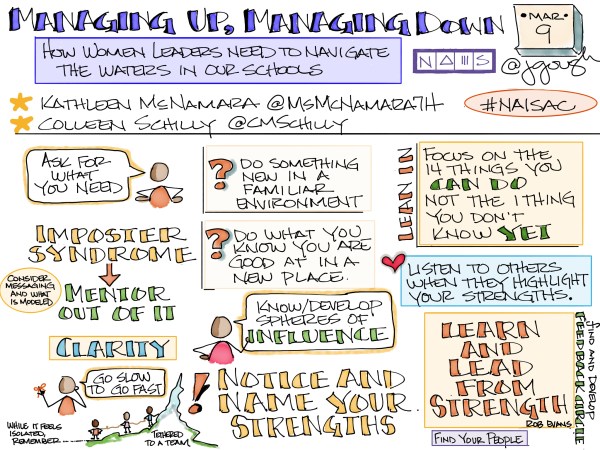 MANAGING UP, MANAGING DOWN
MAR
9
HOW WOMEN LEADERS NEED TO NAVIGATE
THE WATERS IN OUR SCHOOLS
@jgough
KATHLEEN MCNAMARA @MSMCNAMARA7H
#NAISAC
COLLEEN SCHILLY @CMSCHILLY
ASK FOR
WHAT
YOU NEED
? DO SOMETHING
NEW IN A
FAMILIAR
ENVIRONMENT
LEAN IN
FOCUS ON THE
14 THINGS YOU
CAN DO
NOT THE 1 THING
YOU DON'T
KNOW YET
IMPOSTER
SYNDROME
? DO WHAT YOU
KNOW YOU ARE
GOOD AT IN A
NEW PLACE.
LISTEN TO OTHERS
WHEN THEY HIGHLIGHT
YOUR STRENGTHS.
CONSIDER
MESSAGING
AND WHAT
IS MODELED
MENTOR
OUT OF IT
KNOW/DEVELOP
SPHERES OF
INFLUENCE
CLARITY
LEARN
AND
LEAD
FROM
STRENGTH
ROB EVANS
FIND AND DEVELOP
FEEDBACK CIRCLE
GO SLOW
TO GO FAST
! NOTICE AND
NAME YOUR
STRENGTHS
WHILE IT FEELS
ISOLATED,
REMEMBER...
TETHERED
TO A TEAM
FIND YOUR PEOPLE